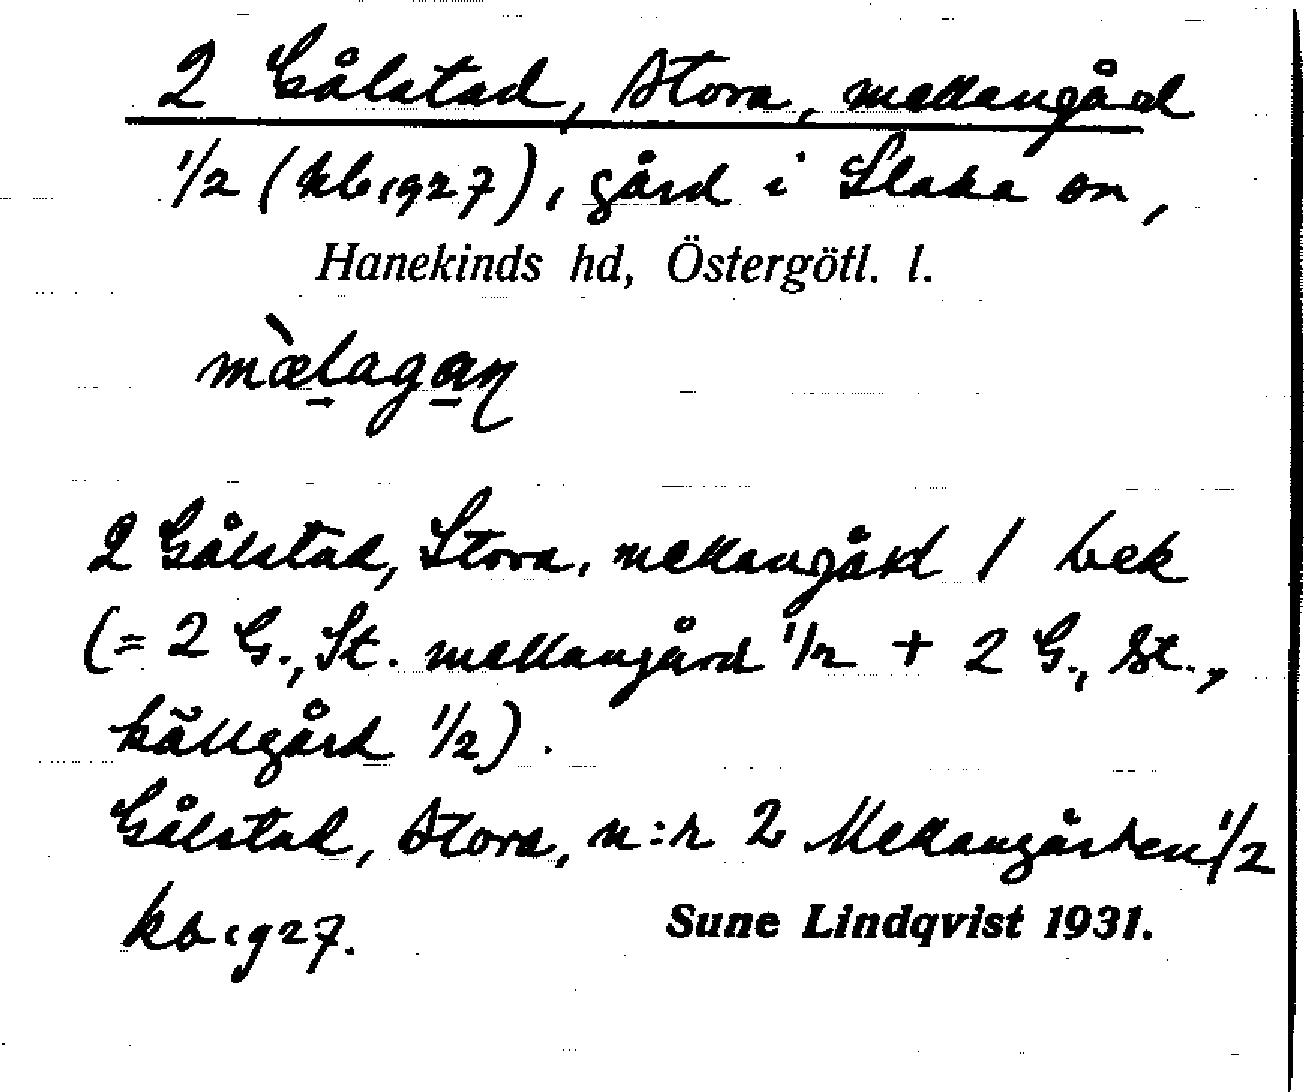 2 Gålstad, Stora, mellangård
1/2 (kb 1927), gård i Slaka sn,
Hanekinds hd, Östergötl. l.
mæ̀lagaɳ
2 Gålstad, Stora, mellangård / bek
(= 2 G., St. mellangård 1/2 + 2 G., St.,
källgård 1/2).
Gålstad, Stora, n:r 2 Mellangården 1/2
kb 1927.
Sune Lindqvist 1931.